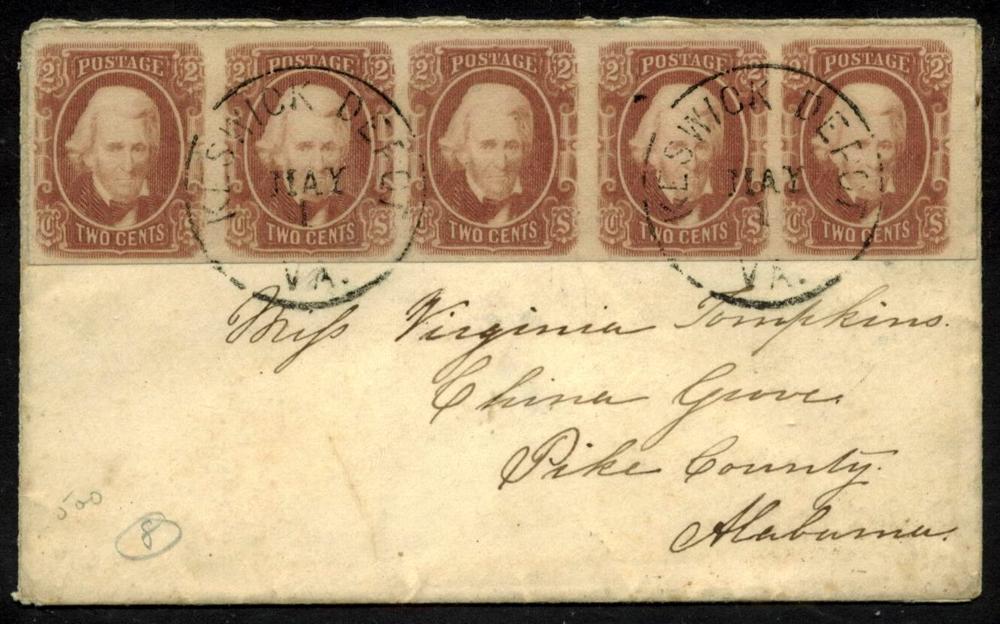 2 POSTAGE 2 2 POSTAGE 2 2 POSTAGE 2 2 POSTAGE 2 2 POSTAGE 2
C TWO CENTS S C TWO CENTS S C TWO CENTS S C TWO CENTS S C TWO CENTS S
KESWICK DEPOT
MAY
1
VA.
KESWICK DEPOT
MAY
1
VA.
Miss Virginia Tompkins.
China Grove.
Pike County.
Alabama.
500
8